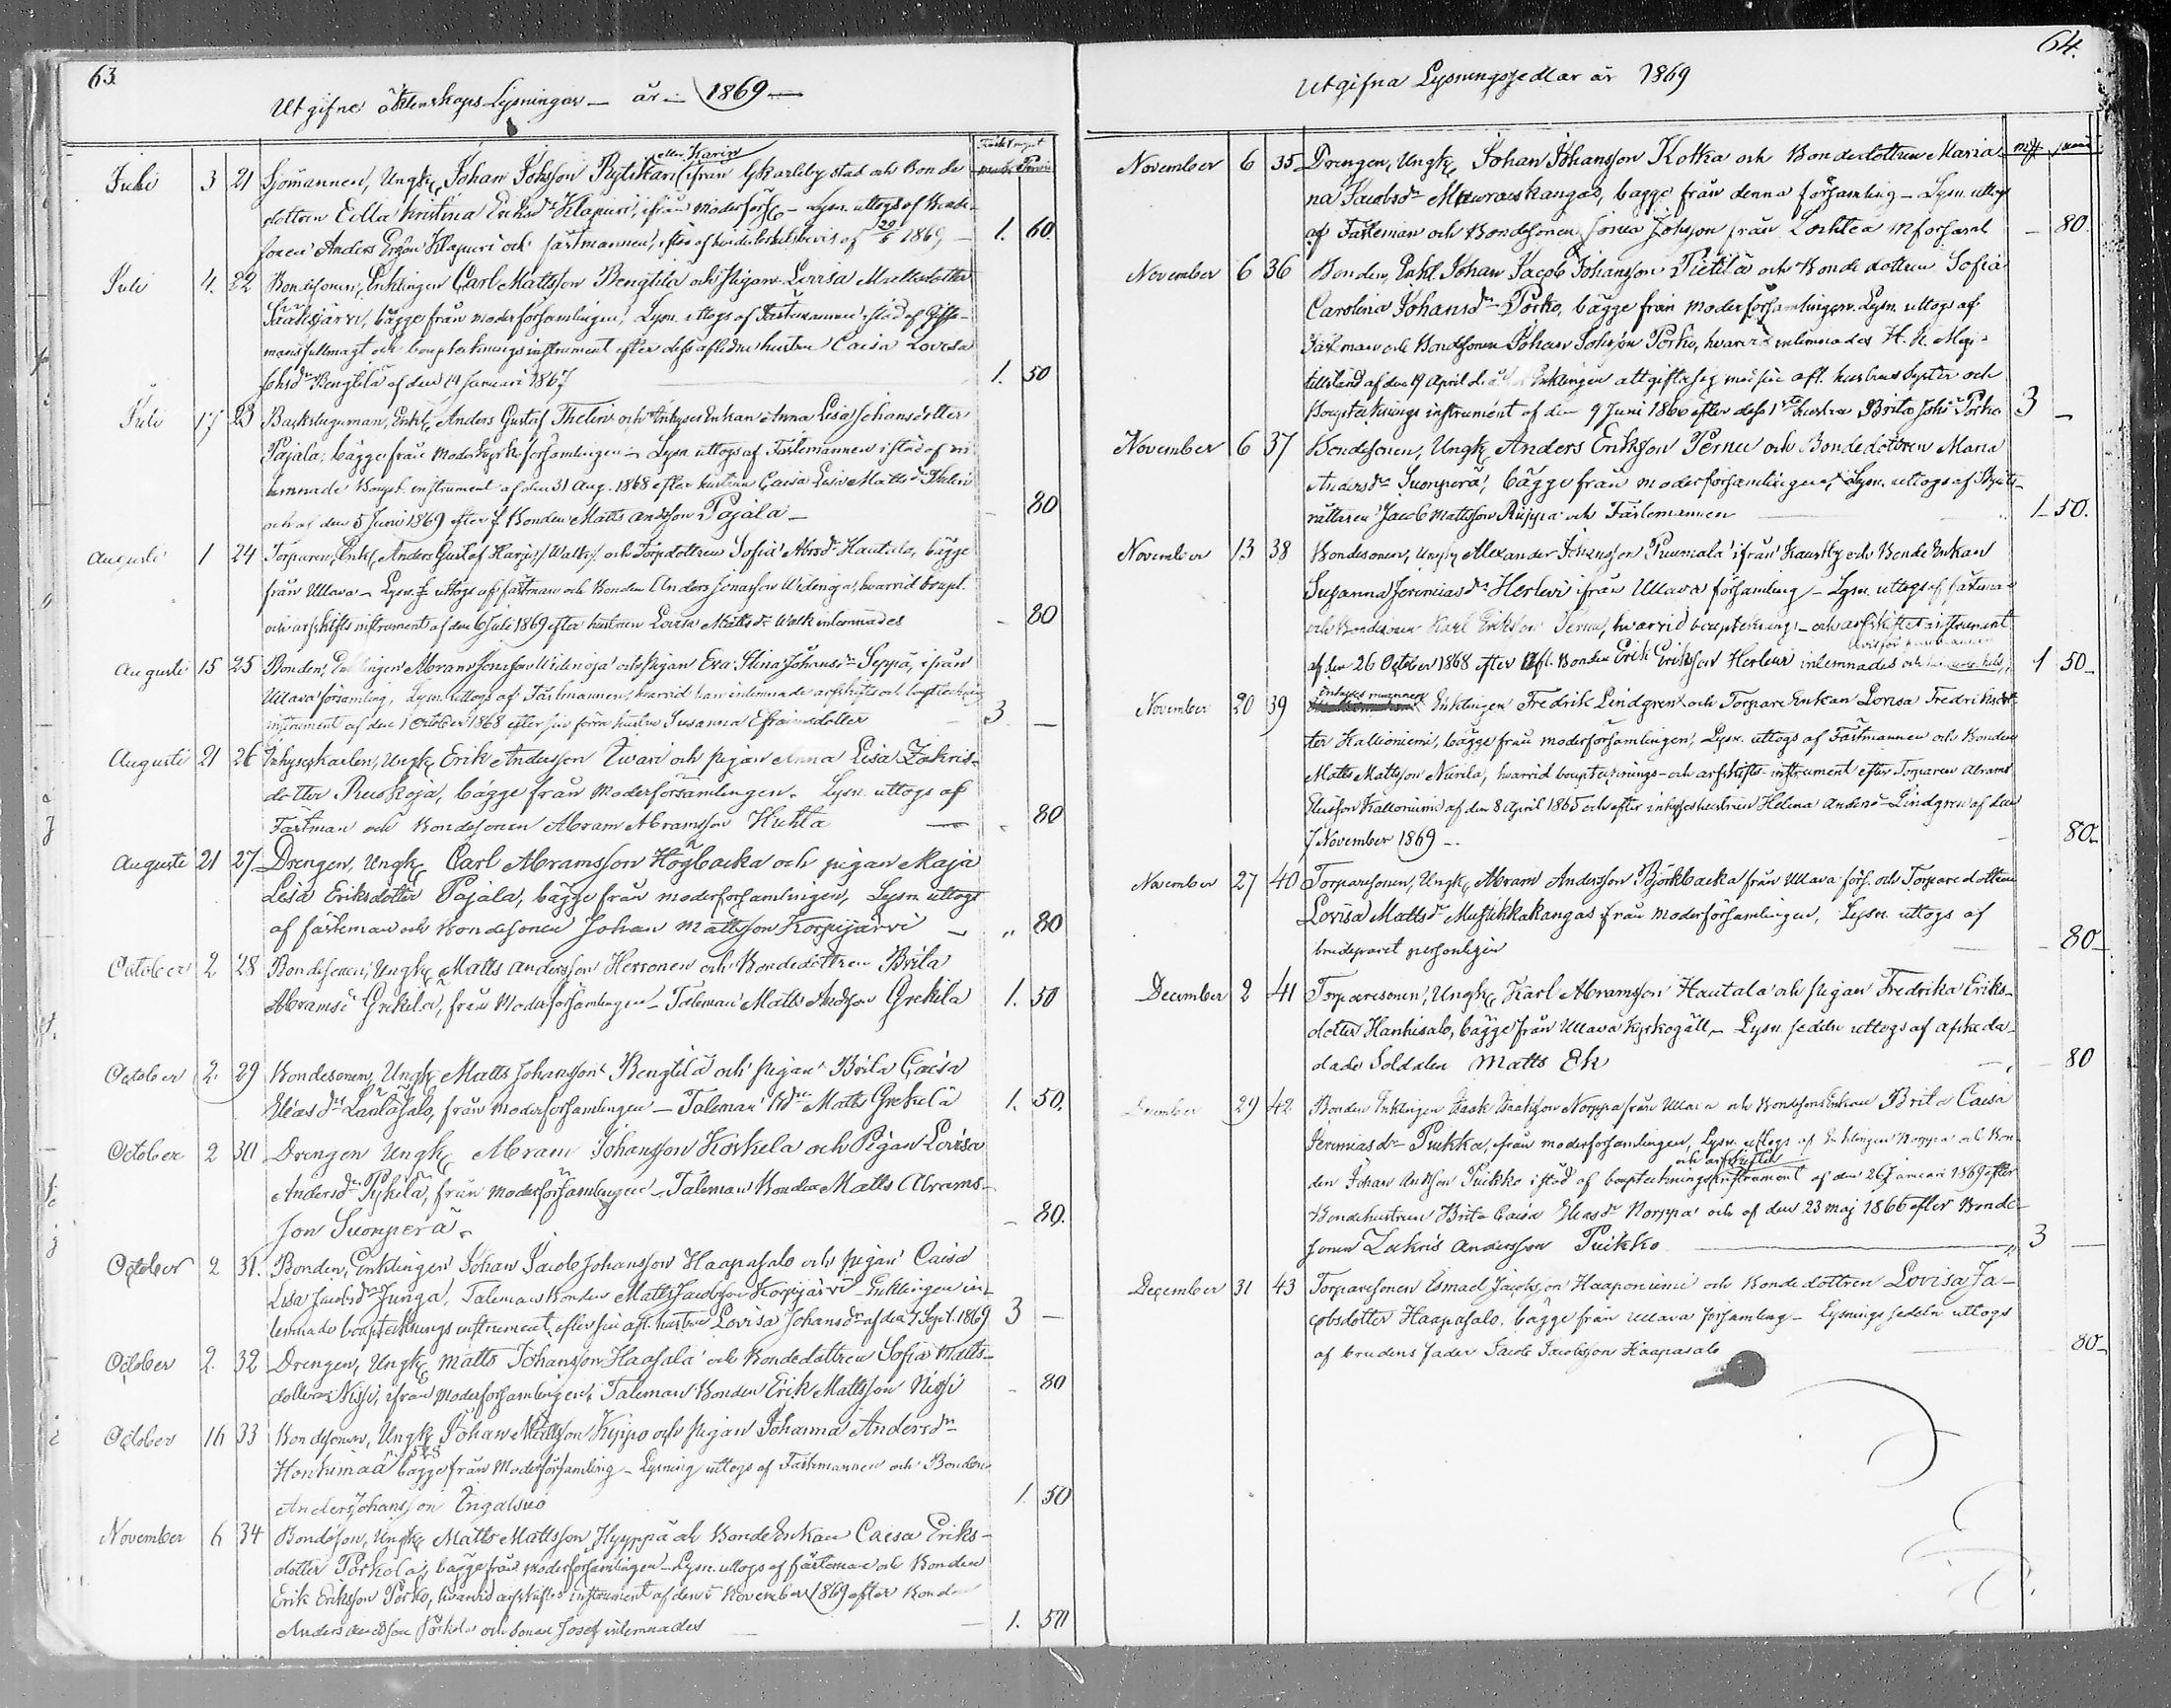 63.
Utgifne äktenskaps Lysningar — år — 1869 —
Juli 3 21 Sjömannen, Ungk Johan Johsson Rytikari (eller Karin) ifrån Gkarleby stad och Bonde
dottren Eilla Kristina Eriksdr Klapuri, ifrån moderförs — Lysn. uttogs af Bonde-
sonen Anders Ersson Klapuri och fästmannen, efter af 29/6 1869, — 1. 60.
Juli 4. 22 Bondesonen, Enklingen Carl Mattsson Bengtila och pigan Lovisa Mattsdotter
Sääksjärvi, bägge från moderförsamlingen, Lysn. uttogs af Fästmannen istöd af Gifto-
mans fullmagt och bouptecknings instrument efter dess aflidna hustru Caisa Lovisa
Johsdr Bengtilä af den 14 Januari 1867 1. 50
Juli 17 23 Backstuguman, Enkl Anders Gustaf Thelin och Inhyses Enkan Anna Lisa Johansdotter
Pajala, bägge från Moderkyrkoförsamlingen — Lysn uttogs af Fästemannen i stöd af in-
lemnade Boupt. instrument af den 31 Aug. 1868 efter hustrun Caisa Lisa Mattsdr Thelin
och af den 5 Juni 1869 efter f. Bonden Matts Andsson Pajala — - 80
Augusti 1 24 Torparen, Enkl Anders Gustaf Harju /Walk/ och Torpdottren Sofia Abrsdr Hautala, bägge
från Ullava — Lysn. uttogs af fästman och Bonden Anders Jonasson Widenoja, hvarvid boupt.
och arfskifts instrument af den 6 Juli 1869 efter hustrun Lovisa Mattsdr Walk inlemnades - 80
Augusti 15 25 Bonden, Enklingen Abram Jonasson Widenoja och pigan Eva Stina Johansdr Seppä, ifrån
Ullava församling, Lysn. uttogs af Fästmannen, hvarvid han inlemnade arfskifts och bouptecknings
instrument af den 1 October 1868 efter sin förra hustru Susanna Efraimsdotter 3 —
Augusti 21 26 Inhyseskarlen, Ungk Erik Andersson Iwari och pigan Anna Lisa Zakris-
dotter Ruokoja, bägge från Moderförsamlingen. Lysn. uttogs af
Fästman och Bondesonen Abram Abramsson Huhta - 80
Augusti 21 27 Drengen, Ungk Carl Abramsson Högbacka och pigan Maja
Lisa Eriksdotter Pajala, bägge från moderförsamlingen, Lysn. uttogs
af fästeman och Bondesonen Johan Mattsson Korpijärvi — „ 80
October 2 28 Bondesonen, Ungk Matts Andersson Herronen och Bondedottren Brita
Abramsdr Grekilä, från Moderförsamlingen — Taleman Matts Andsson Grekila 1. 50
October 2. 29 Bondesonen, Ungk Matts Johansson Bengtilä och pigan Brita Caisa
Eliasdr Länlösalo, från moderförsamlingen — Taleman Bdn Matts Grekilä 1. 50.
October 2 30 Drengen Ungk Abram Johansson Korkela och Pigan Lovisa
Andersdr Pykilä, från moderförsamlingen — Taleman Bonden Matts Abrams-
son Suonperä. - 80.
October 2 31. Bonden, Enklingen Johan Jacob Johansson Haapasalo och pigan Caisa
Lisa Jacobsdr Junga, Taleman Bonden Matts Jacobsson Korpijärvi — Enklingen in-
lemnade bouptecknings instrument efter sin afl. hustru Lovisa Johansdr af den 7 Sept. 1869 3 —
October 2. 32 Drengen, Ungk Matts Johansson Haasala och Bondedottren Sofia Matts-
dotter Nissi, ifrån Moderförsamlingen, Taleman Bonden Erik Mattsson Nissi - 80
October 16 33 Bondesonen, Ungk Johan Mattsson Kippo och pigan Johanna Andersdr
Honkimaa bägge från Moderförsamling — Lysning uttogs af Fästmannen och Bonden
Anders Johansson Ingalsuo 1. 50
November 6 34 Bondeson, Ungk Matts Mattsson Hyyppä och Bonde Enkan Caisa Eriks-
dotter Porkola, bägge från moderförsamlingen — Lysn. uttogs af fästeman och Bonden
Erik Eriksson Porko, hvarvid arfskiftes instrument af den 5 November 1869 efter Bonden
Anders Andsson Porkola och sonen Josef inlemnades 1. 50
64.
Utgifna Lysningssedlar år 1869
November 6 35 Drengen, Ungk Johan Johansson Kotka och Bondedottren Maria-
na Jacobsdr Mauraiskangas, bägge från denna församling — Lysn. uttogs
af Fästeman och Bondsonen Jonas Johsson från Lochtea Mförsaml - 80.
November 6 36 Bonden, Enkl. Johan Jacob Johansson Pietilä och Bondedottren Sofia
Carolina Johansdr Porko, bägge från moderförsamlingen. Lysn. uttogs af
Fästman och Bondsonen Johan Johsson Porko, hvarvid inlemnades H. K. Maj:
tillstånd af den 19 April d. å. för Enklingen att gifta sig med sin afl. hustrus syster och
Bouptecknings instrument af den 9 Juni 1860 efter dess 1sta hustru Brita Johsdr Porko 3 —
November 6 37 Bondesonen, Ungk Anders Eriksson Pernu och Bondedottren Maria
Andersdr Suonperä, bägge från moderförsamlingen, Lysn. uttogs af
rättaren Jacob Mattsson Riippa och Fästemannen 1 50.
November 13 38 Bondesonen, Ungk Alexander Johansson Puumala ifrån Kaustby och Bonde Enkan
Susanna Jeremiasdr Herlevi ifrån Ullava församling — Lysn. uttogs af fästman
och Bondesonen Karl Eriksson Pernu, hvarvid bouptecknings- och arfskiftes instrument
af den 26 October 1868 efter Afl. Bonden Erik Eriksson Herlevi inlemnades och 1 50
November 20 39 Inhyses mannen Enklingen Fredrik Lindgren och Torpare Enkan Lovisa Fredriksdot-
ter Kallioniemi, bägge från moderförsamlingen, Lysn. uttogs af Fästmannen och Bonden
Matts Mattsson Nivila, hvarvid bouptecknings- och arfskifts-instrument efter Torparen Abram
Eliasson Kallioniemi af den 8 April 1865 och efter inhyseshustrun Helena Andersdr Lindgren af den
7 November 1869 —. 80
November 27 40 Torparesonen, Ungk Abram Andersson Björkbacka från Ullava förs. och Torpare dottren
Lovisa Mattsdr Mustikkakangas från Moderförsamlingen, Lysn. uttogs af
brudeparet personligen - 80
December 2 41 Torparesonen, Ungk Karl Abramsson Hautala och pigan Fredrika Eriks-
dotter Hanhisalo, bägge från Ullava Kyrkogäll — Lysn. sedeln uttogs af afskeda-
dade Soldaten Matts Ek - 80
December 29 42 Bonden Enklingen Isaak Isaaksson Norppa från Ullava och Bondsons Enkan Brita Caisa
Jeremiasdr Puikko, ifrån moderförsamlingen, Lysn. uttogs af Enklingen Norppa och Bon-
den Johan Andsson Puikko istöd af bouptecknings och arfskiftes instrument af den 26 Januari 1869 efter
Bondehustrun Brita Caisa Eliasdr Norppa och af den 23 Maj 1866 efter Bonde-
sonen Zakris Andersson Puikko 3 —
December 31 43 Torparesonen Ismael Jacobsson Haaponiemi och Bonde dottren Lovisa Ja-
cobsdotter Haapasalo, bägge från Ullava församling — Lysnings sedeln uttogs
af brudens fader Jacob Jacobsson Haapasalo 80